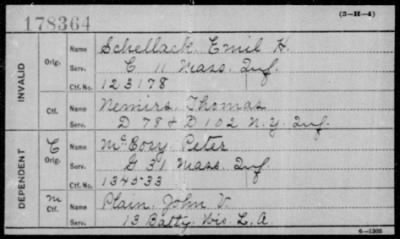 178364
(3-H-4)
INVALID
Orig.
Name Schellack, Emil H.
Serv. C 11 Mass. Inf.
Ctf. No. 123178
Ctf.
Name Nemirs, Thomas
Serv. D 78 & D 102 N.Y. Inf.
DEPENDENT
C
Orig.
Name McEvoy, Peter
Serv. G 31 Mass. Inf.
Ctf. No. 134533
M
Ctf.
Name Plain, John V.
Serv. 13 Batty. Wis. L. A.
6-1305